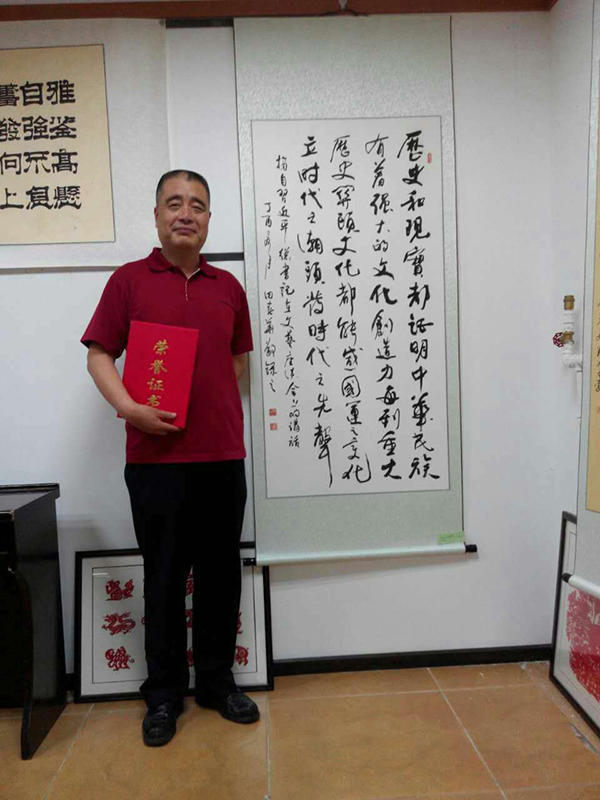 雅鉴高懸
自强不息
奮發向上
荣誉证书
歷史和現實都证明中華民族
有着强大的文化創造力每到重大
歷史関頭文化都能感國運之变化
立时代之潮頭發時代之先聲
摘自習近平總書記在文藝座談會上的講話
丁酉年